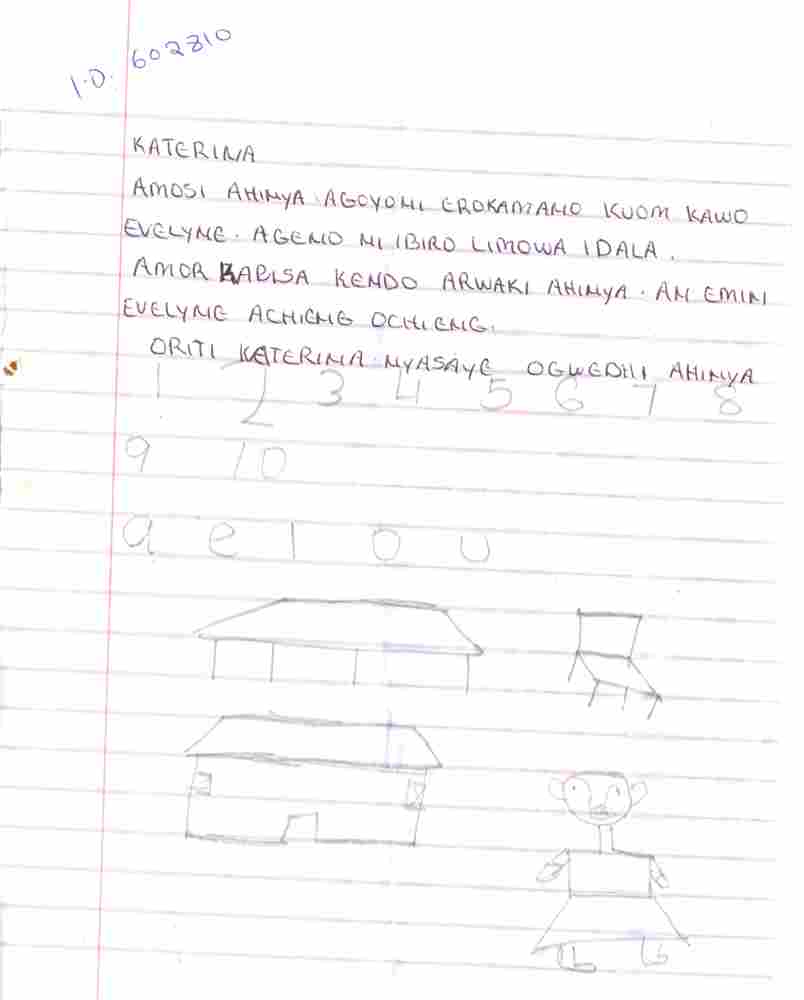 I.D. 602810
KATERINA
AMOSI AHINYA. AGOYONI EROKAMANO KUOM KAWO
EVELYNE. AGENO NI IBIRO LIMOWA IDALA.
AMOR BARISA KENDO ARWAKI AHINYA. AN EMIN
EVELYNE ACHIENG OCHIENG.
ORITI KATERINA NYASAYE OGWEDHI AHINYA
1 2 3 4 5 6 7 8
9 10
a e i o u